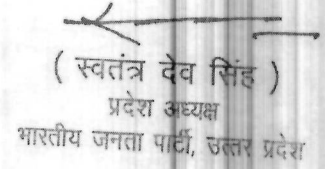 ( स्वतंत्र देव सिंह )
प्रदेश अध्यक्ष
भारतीय जनता पार्टी, उत्तर प्रदेश